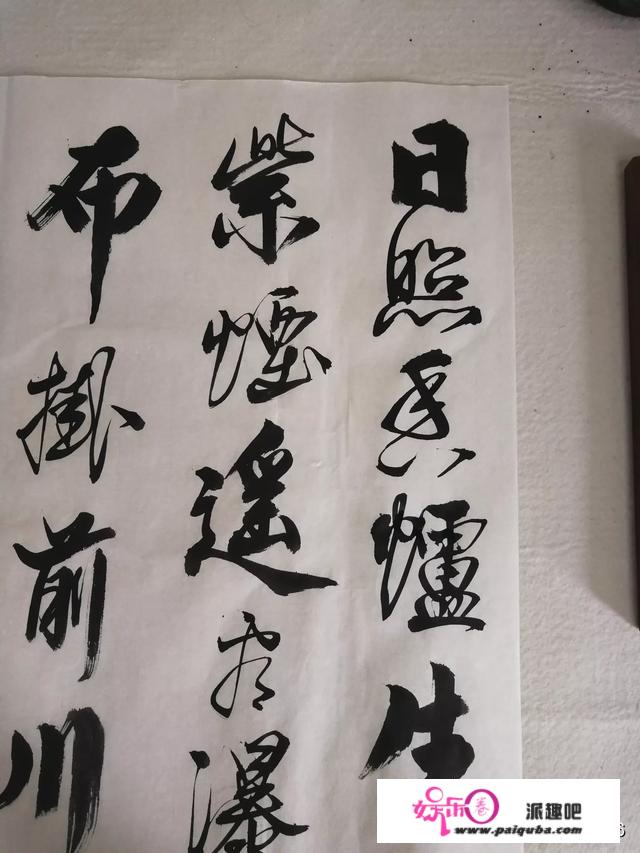 日照香爐生
紫煙遥看瀑
布掛前川
娱乐圈 派趣吧
www.paiquba.com
6